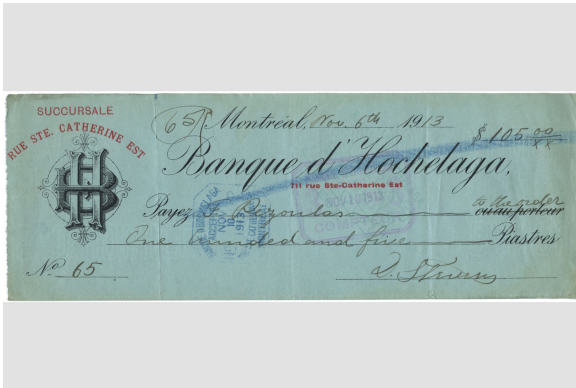 SUCCURSALE
RUE STE. CATHERINE EST
BH
65 Montréal, Nov. 6th 1913
$105.00
xx
Banque d'Hochelaga,
711 rue Ste-Catherine Est
NOV 10 1913
Payez à to the order
ou au porteur
One hundred and five Piastres
No. 65